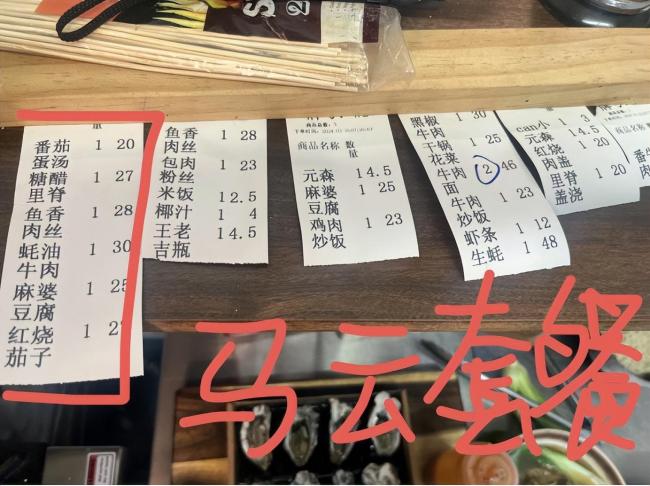 量
番茄 1 20
蛋汤
糖醋 1 27
里脊
鱼香 1 28
肉丝
蚝油 1 30
牛肉
麻婆 1 25
豆腐
红烧 1 2
茄子
鱼香 1 28
肉丝
包肉 1 23
粉丝
米饭 1 2.5
椰汁 1 4
王老 1 4.5
吉瓶
商品总数: 1
商品名称 数量
元森 1 4.5
麻婆 1 25
豆腐
鸡肉 1 23
炒饭
黑椒 1 30
牛肉
干锅 1 25
花菜
牛肉 2 46
面
牛肉 1 23
炒饭
虾条 1 12
生蚝 1 48
can小 1 3
元森 1 4.5
红烧 1 20
肉盖
里脊 1 20
盖浇
马云套餐